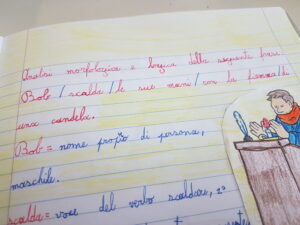 Analisi morfologica e logica della seguente frase.
Bob / scalda / le sue mani / con la fiamma di
una candela.
Bob = nome proprio di persona,
maschile.
scalda = voce del verbo scaldare, 2ª